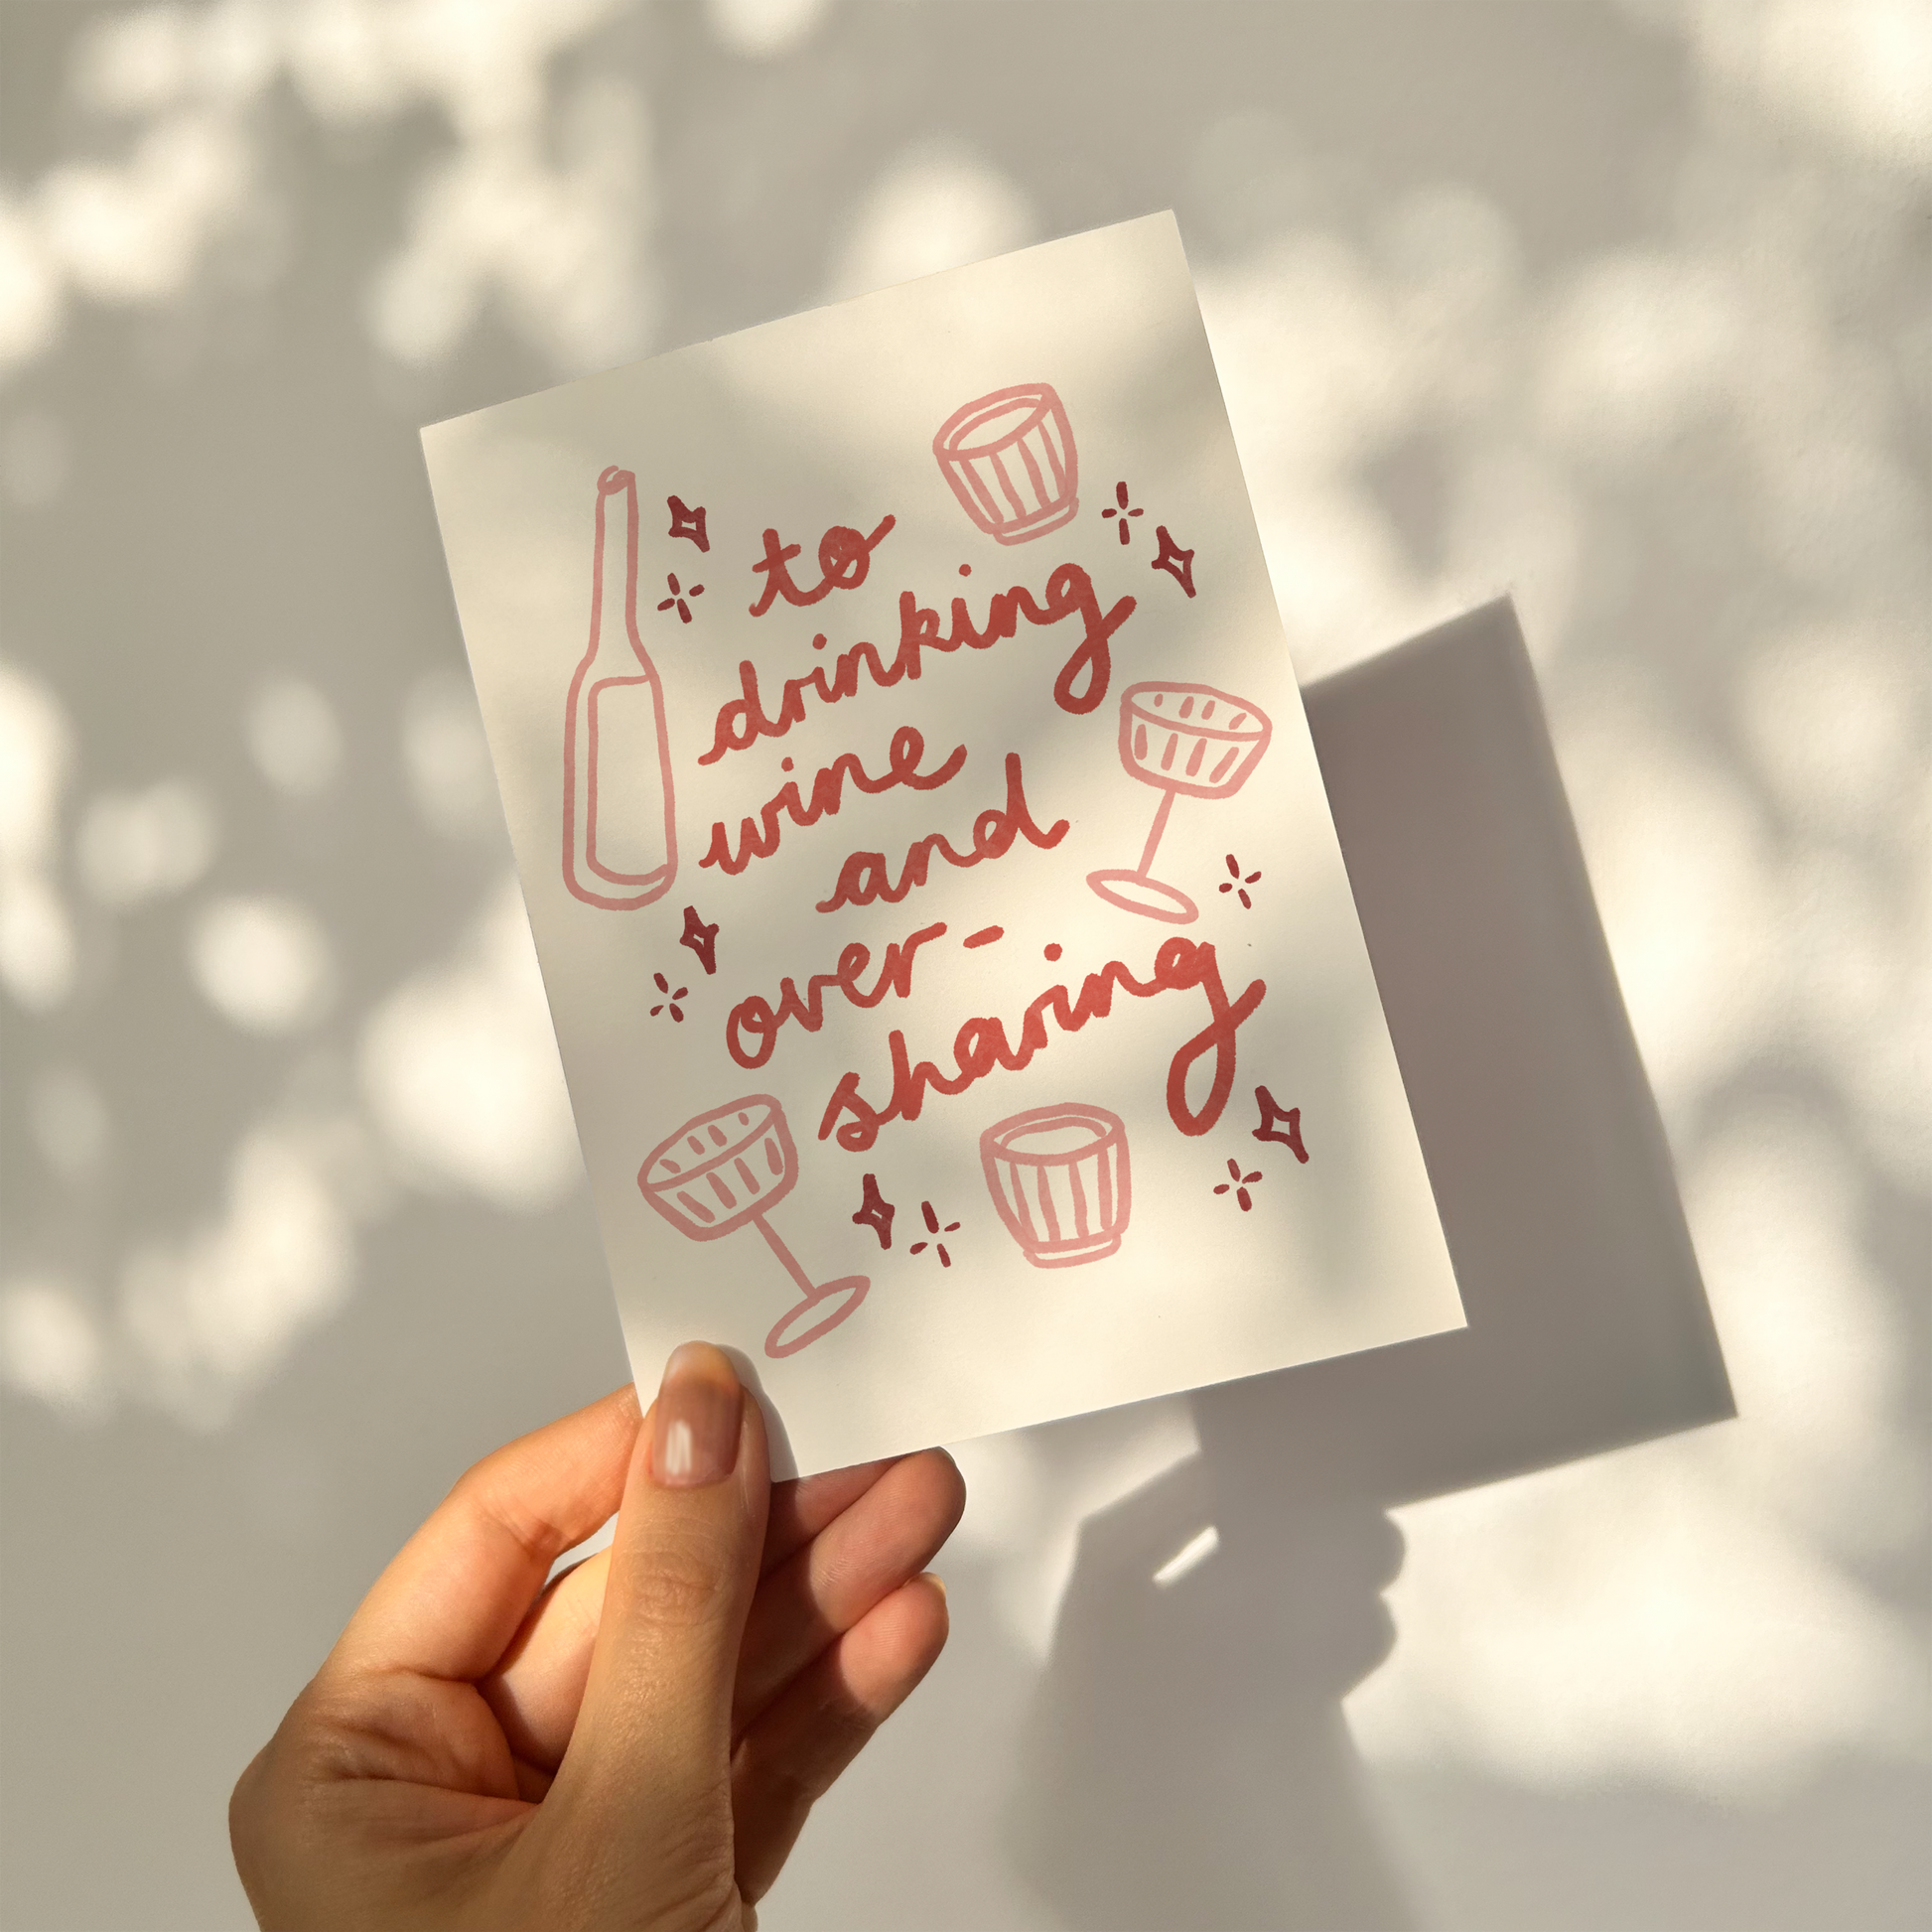 to
drinking
wine
and
over-
sharing